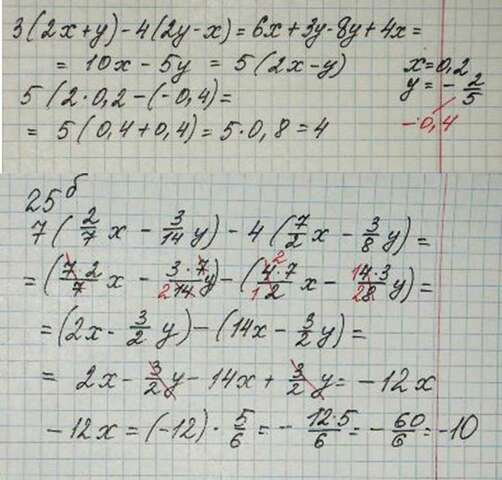 3(2x+y)-4(2y-x)=6x+3y-8y+4x=
= 10x-5y = 5(2x-y)
x=0,2
5(2·0,2-(-0,4)=
y=-2/5
= 5(0,4+0,4)=5·0,8=4
-0,4
25б
7(2/7x - 3/14y) - 4(7/2x - 3/8y)=
=(7·2/7x - 3·7/14y)-(4·7/2x - 4·3/8y)=
2
2
1
1
2
=(2x-3/2y)-(14x-3/2y)=
= 2x-3/2y-14x+3/2y=-12x
-12x=(-12)·5/6=-12·5/6=-60/6=-10